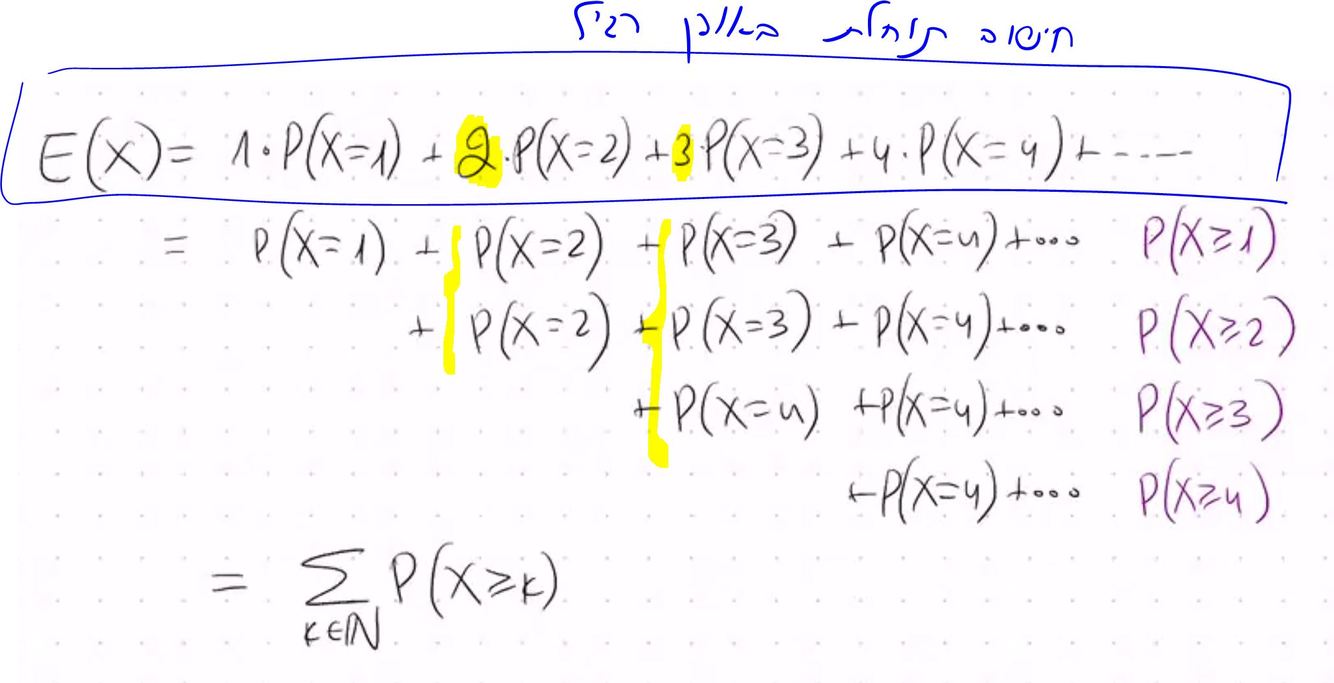 חישוב תוחלת באופן רגיל
E(X)= 1·P(X=1) + 2·P(X=2) +3·P(X=3) +4·P(X=4)+-----
= P(X=1) + P(X=2) + P(X=3) + P(X=4)+ooo P(X≥1)
+ P(X=2) + P(X=3) + P(X=4)+ooo P(X≥2)
+P(X=4) +P(X=4)+ooo P(X≥3)
+P(X=4)+ooo P(X≥4)
= ∑ P(X≥k)
k∈ℕ